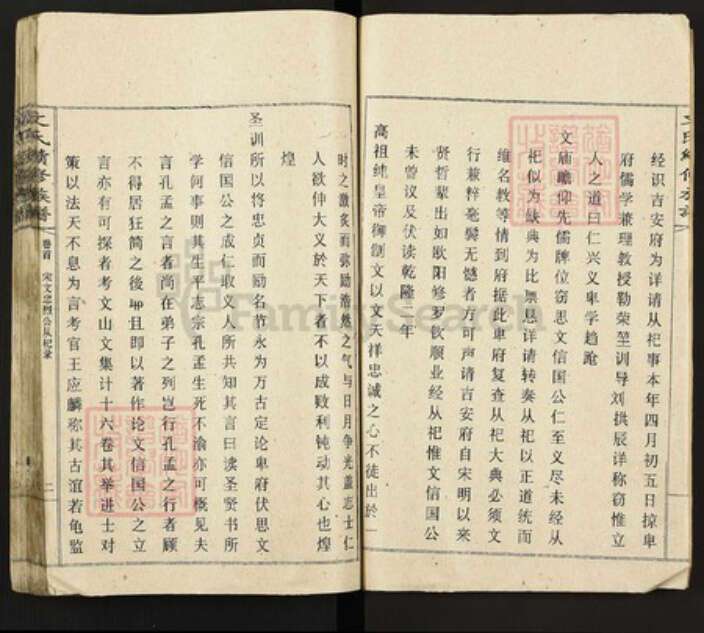 经识吉安府为详请从祀事本年四月初五日据卑
府儒学兼理教授勒荣堃训导刘拱辰详称窃惟立
人之道曰仁兴义卑学趋跄
文庙瞻仰先儒牌位窃思文信国公仁至义尽未经从
祀似为缺典为比禀恳详请转奏从祀以正道统而
维名教等情到府据此卑府复查从祀大典必须文
行兼粹毫鬓无憾者方可声请吉安府自宋明以来
贤哲辈出如欧阳修罗钦顺业经从祀惟文信国公
未曾议及伏读乾隆 年
高祖纯皇帝御制文以文天祥忠诚之心不徒出於一
时之激炙而弥励浩然之气与日月争光盖志士仁
人欲伸大义於天下者不以成败利钝动其心也煌
煌
圣训所以将忠贞而励名节永为万古定论卑府伏思文
信国公之成仁取义人所共知其言曰读圣贤书所
学何事则其生平志宗孔孟生死不渝亦可概见夫
言孔孟之言者尚在弟子之列岂行孔孟之行者顾
不得居狂简之後 且即以著作论文信国公之立
言亦有可探者考文山文集计十六卷其举进士对
策以法天不息为言考官王应麟称其古谊若龟监
文氏续修族谱
卷首 宋文忠烈公从祀录
二
FamilySearch